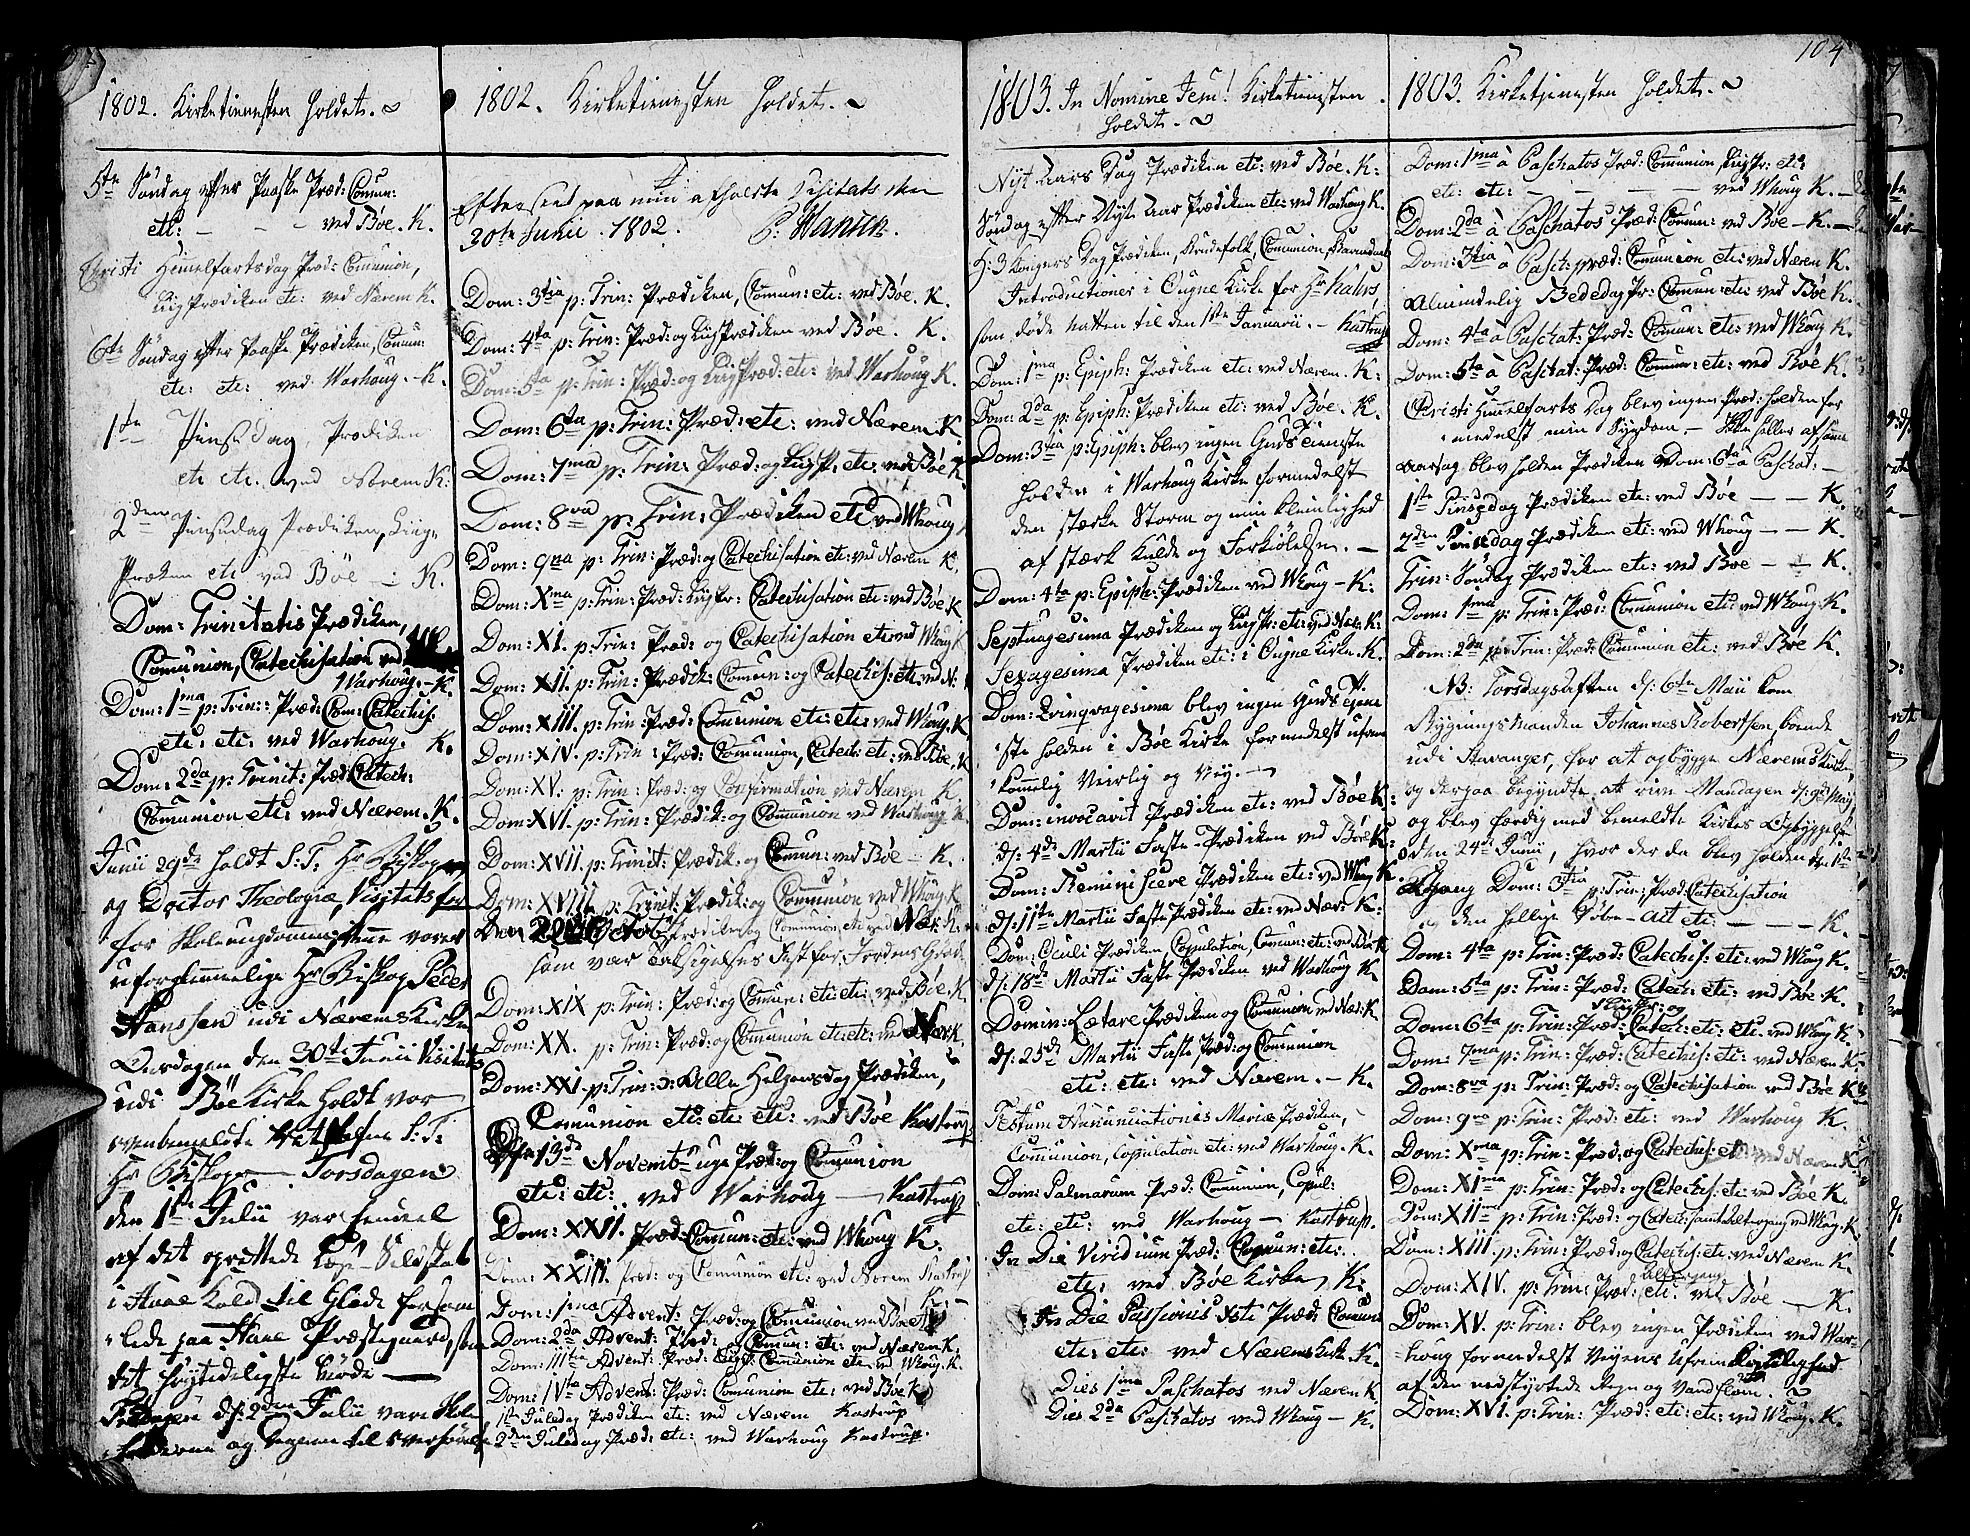 1802. Kirketienesten holdet.
5te Søndag efter Paaske Præd: Comun:
etc: — — — ved Bøe. K.
Christi Himelfartsdag Præd: Comunion,
LiigPrædiken etc: ved Nærem K.
6te Søndag efter Paaske Prædiken, Comun:
etc: etc: ved Warhoug. K.
1ste Pinsedag, Prædiken
etc etc. ved Nærem K.
2den Pinsedag Prædiken, Liig-
Præken etc ved Bøe — K.
Dom: Trinitatis Prædiken,
Comunion, Catechisation ved
Warhoug. K.
Dom: 1ma p: Trin: Præd: Com: Catechis:
etc: etc: ved Warhoug. K.
Dom: 2da p: Trinit: Præd: Catech:
Comunion etc: ved Nærem. K.
Junii 29de holdt S. T. Hr Biskop
og Doctor Theologiæ, Visitats
for Skoleungdommen vores
uforglemmelige Hr Biskop Peder
Hanssen udi Nærems Kirke
Onsdagen den 30te Junii Visitats
udi Bøe Kirke holdt vor
ovenbemeldte S. T:
Hr Biskop — Torsdagen
den 1ste Julii var
af det oprettede Læse-Selskab
i Haae Kald til Glæde forsam
lede paa Haae Præstegaard,
det høytideligste
den Julii vare Skole
og
1802. Kirketienesten holdet.
Efterseet paa min afholdte Visitats den
30te Junii 1802. P. Hansen.
Dom: 3tia p: Trin: Prædiken, Comun: etc: ved Bøe. K.
Dom: 4ta p: Trin: Præd: og LiigPrædiken ved Bøe. K.
Dom: 5ta p: Trin: Præd: og LiigPræd: etc: ved Warhoug K.
Dom: 6ta p: Trin: Præd: etc: ved Nærem K.
Dom: 7ma p: Trin: Præd: og Liigp. etc: ved Bøe K.
Dom: 8va p: Trin: Prædiken etc ved Whoug
Dom: 9na p: Trin: Præd: og Catechisation etc: ved Næren K.
Dom: Xma p: Trin: Præd: LiigPr: Catechisation etc: ved Bøe K
Dom: XI. p: Trin: Præd: og Catechisation etc ved Whoug K
Dom: XII. p: Trin: Prædik: Comun: og Catechis: etc: ved N.
Dom: XIII. p: Trin Præd: Comunion etc: etc: ved Whoug. K
Dom: XIV. p: Trin: Præd: Comunion, Catech: etc: ved Bøe, K
Dom: XV. p: Trin: Præd: og Confirmation ved Nærem K
Dom: XVI. p: Trin: Prædik: og Comunion ved Warhoug K.
Dom: XVII. p: Trinit: Prædik: og Comun: ved Bøe — K.
Dom: XVIII. p: Trinit: Prædik: og Comunion ved Whoug K
Octob: Prædiken og Comunion etc ved Nær: K.
som var Taksigelses Fest for Jordens Grøde
Dom: XIX p: Trin: Præd: og Comun: etc: etc: ved Bøe K
Dom: XX. p: Trin: Præd: og Comunion etc: etc: ved Nær K
Dom: XXI. p: Trin: ɔ: Alle Helgensdag Prædiken,
Comunion etc: etc: etc: ved Bøe Kastrup
13de Novembr uge Præd: og Comunion
etc: etc: ved Warhoug — Kastrup
Dom: XXII. Præd: Comun: etc: ved Whoug K.
Dom: XXIII. Præd: og Comunion etc: ved Nærem Kastrup
K.
Dom: 1ma Advent: Præd: og Comunion ved Bøe
Dom: 2da Advent: Præd: og Comun: etc: ved Nærem K.
Dom: IIItia Advent: Præd: Liigp: Comunion etc ved Whoug. K.
Dom: IVta Advent: Præd: Comunion etc: ved Bøe K
1ste Juledag Prædiken etc: ved Nærem Kastrup
2den Juledag Præd: etc: ved Warhoug Kastrup.
1803. In Nomine Jesu! Kirketienesten
holdet.
Nyt Aars Dag Prædiken etc: ved Bøe. K:
Søndag efter Nytt Aar Prædiken etc: ved Warhoug K.
H: 3 Kongers Dag Prædiken, Brudefolk, Comunion, Barnedaab
Introductioner i Ougne Kirke for Hr Kalus,
som døde natten til den 1ste Januarii. — Kastrup
Dom: 1ma p: Epiph: Prædiken etc: ved Nærem. K:
Dom: 2da p: Epiph: Prædiken etc: ved Bøe. K.
Dom: 3tia p: Epiph: blev ingen GudsTieneste
holden i Warhoug Kirke formedelst
den stærke Storm og min Kleinlighed
af stærk Kulde og Forkiølelse. —
Dom: 4ta p: Epiph: Prædiken ved Whoug — K:
Septuagesima Prædiken og LiigPr: etc: ved Nær: K:
Sexagesima Prædiken etc: i Ougne Kirke. K.
Dom: Qvinqvagesima blev ingen Guds Tjene
ste holden i Bøe Kirke formedelst ufrem
kommelig Veirlig og Vey.
Dom: invocavit Prædiken etc: ved Bøe K.
d: 4de Martii Faste-Prædiken ved Bøe K.
Dom: Reminiscere Prædiken etc: ved Whoug K.
d: 11te Martii Faste Prædiken etc: ved Nær: K:
Dom: Oculi Prædiken, Copulation, Comun: etc: ved Bøe K
d: 18de Martii Faste Prædiken ved Warhoug K.
Domin: Lætare Prædiken og Comunion ved Nær: K
d: 25de Martii Faste Præd: og Comunion
etc: etc: ved Nærem. — K.
Festum Annunciationis Mariæ Prædiken,
Comunion, Copulation etc: ved Warhoug. K.
Dom: Palmarum Præd: Comunion, Copul:
etc: etc: ved Warhoug — Kastrup.
In Die Viridium Præd: Comun: etc:
etc: ved Bøe Kirke, K:
In Die Passionis Xsti Præd: Comun
etc: etc: ved Nærems Kirke. K.
Dies 1ma Paschatos ved Nærem K.
Dies 2da Paschatos ved Whoug — K.
104
1803. Kirketjenesten holdet.
Dom: 1ma à Paschatos Præd: Comunion, Liigpr: etc:
etc: etc: — — — ved Whoug K.
Dom: 2da à Paschatos Præd: Comun: ved Bøe — K.
Dom: 3tia à Pasch: præd: Comunion etc: ved Næren K.
Almindelig Bededag Pr: Comun: etc: ved Bøe K.
Dom: 4ta à Paschat: Præd: Comun: etc: ved Whoug K.
Dom: 5ta à Paschat: Præd: Comun: etc: ved Bøe K.
Christi Himmelfarts Dag blev ingen Præd: holden for
medelst min Sygdom. — Ikke heller af samme
aarsag blev holden Prædiken Dom: 6ta à Paschat: —
1ste Pinsedag Prædiken etc: ved Bøe — — K.
2den Pinsedag Prædiken etc: ved Whoug — — K.
Trin: Søndag Prædiken etc: ved Bøe — — K.
Dom: 1ma p: Trin: Præd: Comunion etc: ved Whoug. K.
Dom: 2da p: Trin: Præd: Comunion etc: ved Bøe K.
NB: Torsdagsaften d: 6te Maii kom
Bygningsmanden Johannes Robertsen, boende
udi Stavanger, for at opbygge Nærems Kirke,
og derpaa begyndte at rive Mandagen d: 9de May
og blev færdig med bemeldte Kirkes Opbyggelse
den 24de Junii, hvor der da blev holden den 1ste
Gang Dom: 3tia p: Trin: Præd: Catechisation
den hellige Døbe- etc: — — — K.
Dom: 4ta p: Trin: Præd: Catechis: etc: ved Whoug K.
Dom: 5ta p: Trin: Præd: Catech: etc: ved Bøe K.
Dom: 6ta p: Trin: Præd: Catech: etc: etc: ved Whoug K.
Dom: 7ma p: Trin: Præd: Catechis: etc: ved Næren K.
Dom: 8va p: Trin: Præd: og Catechisation ved Bøe K
Dom: 9na p: Trin: Præd: etc: ved Warhoug K.
Dom: Xma p: Trin: Præd: og Catechis: etc ved Nærem K
Dom: XIma p: Trin: Præd: og Catechis: etc: ved Bøe K.
Dom: XIIma p: Trin: Præd: og Catechis: samt Altergang ved Whoug. K
Dom: XIII. p: Trin: Præd: og Catechis: etc: ved Næren K
Altergang
Dom: XIV. p: Trin: Præd: etc: ved Bøe — K.
Dom: XV. p: Trin: blev ingen Prædiken ved War-
houg formedelst Veyens Ufremkommelighed
af den nedstyrtede Regn og Vandflom.
Dom: XVI. p: Trin: Præd: etc: etc: ved Whoug. K.